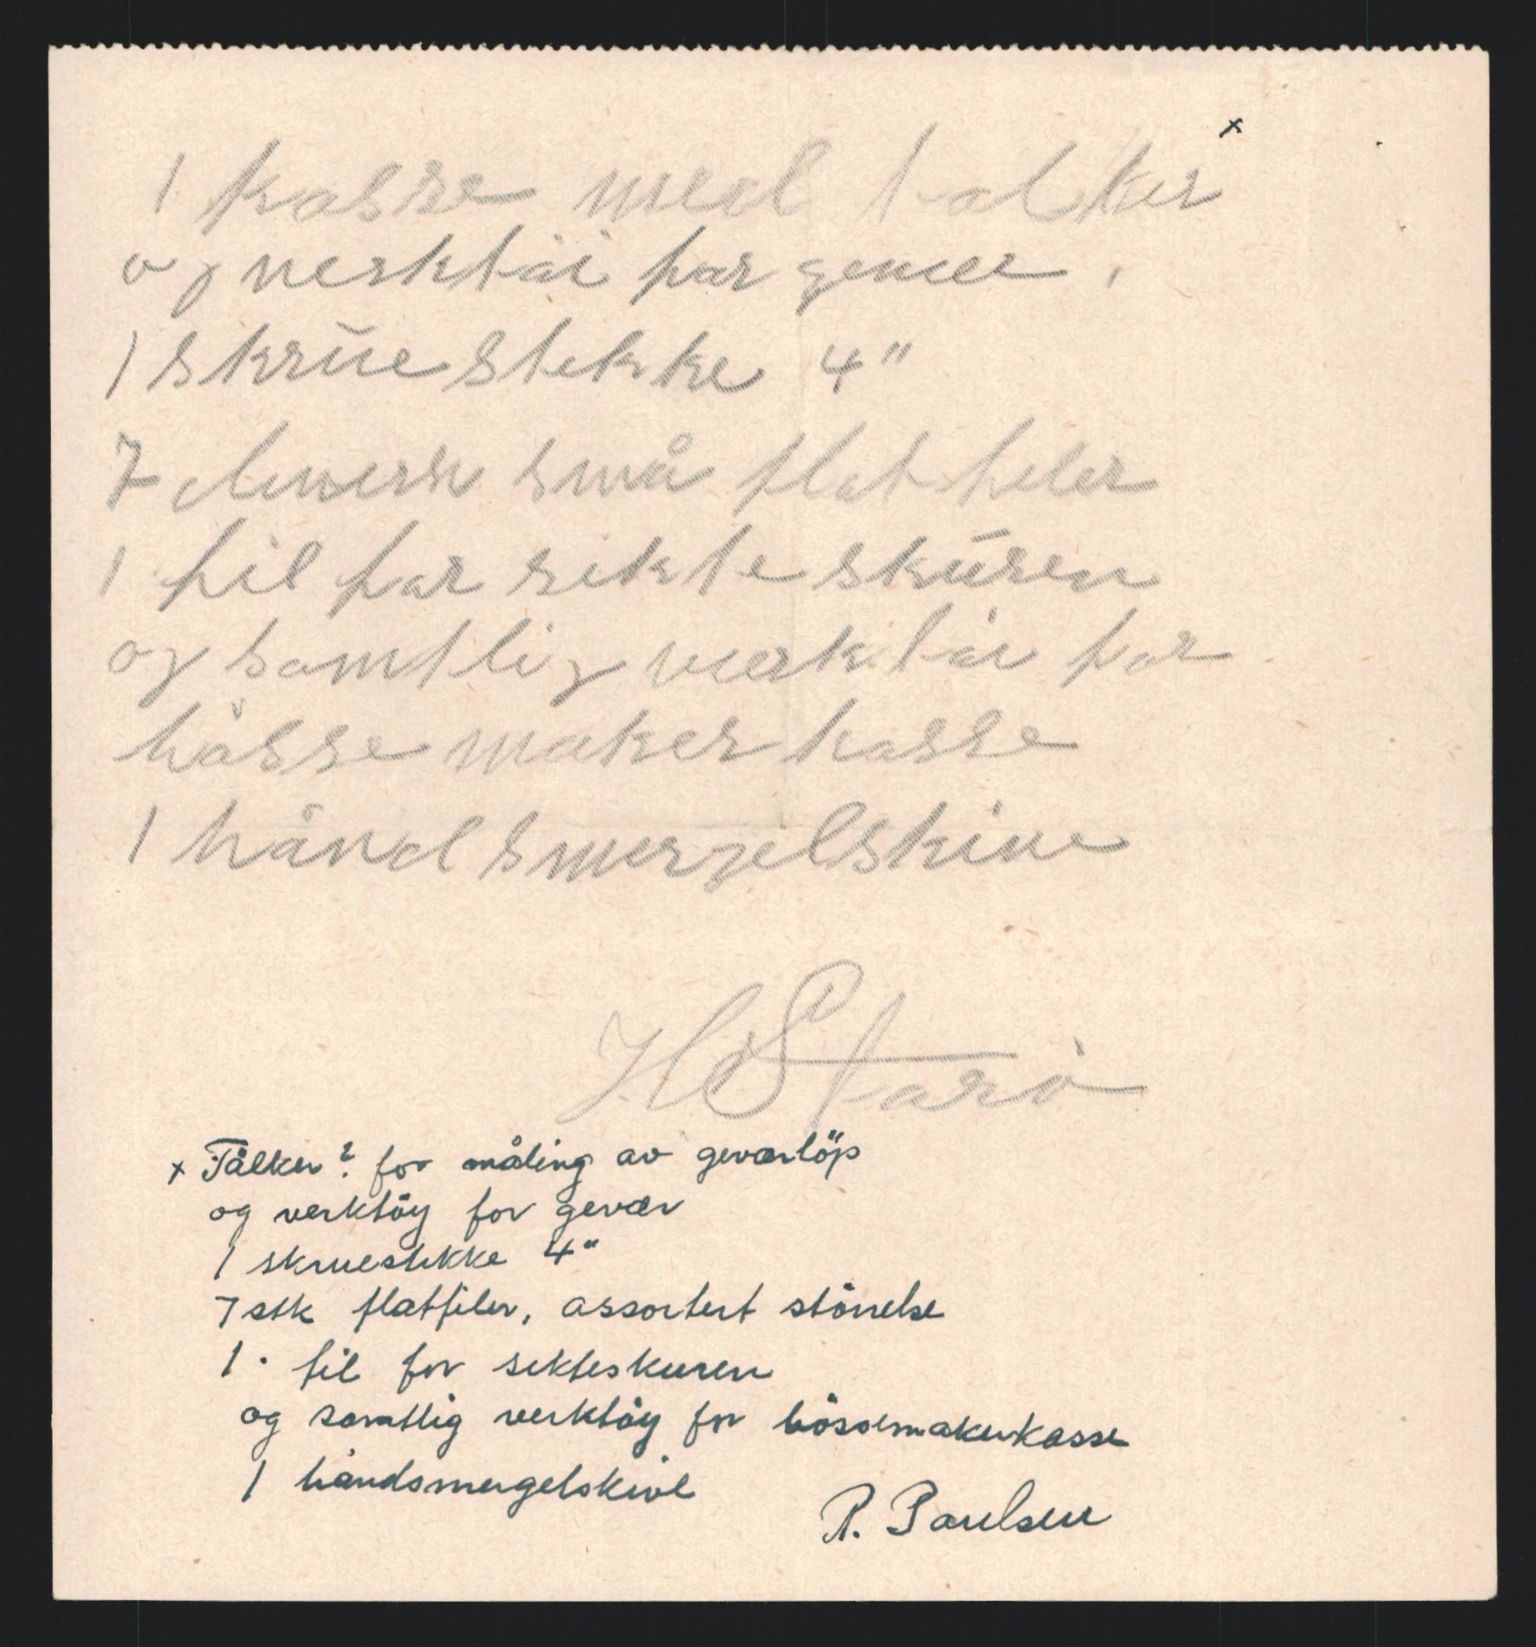 1 kasse med talker x
og verktöi for gever.
1 skrūe stekke 4"
7 små flat feler
1 fil for sikte skūren
og samtlig verktöi for
bösse maker kasse
1 hånd smergelskive
H Starö
x Tålker? for måling av geværlöp
og verktöy for gevær
1 skruestikke 4"
7 stk flatfiler, assortert störrelse
1 · fil for sikteskuren
og samtlig verktöy for bössemakerkasse
1 håndsmergelskive
R. Paulsen